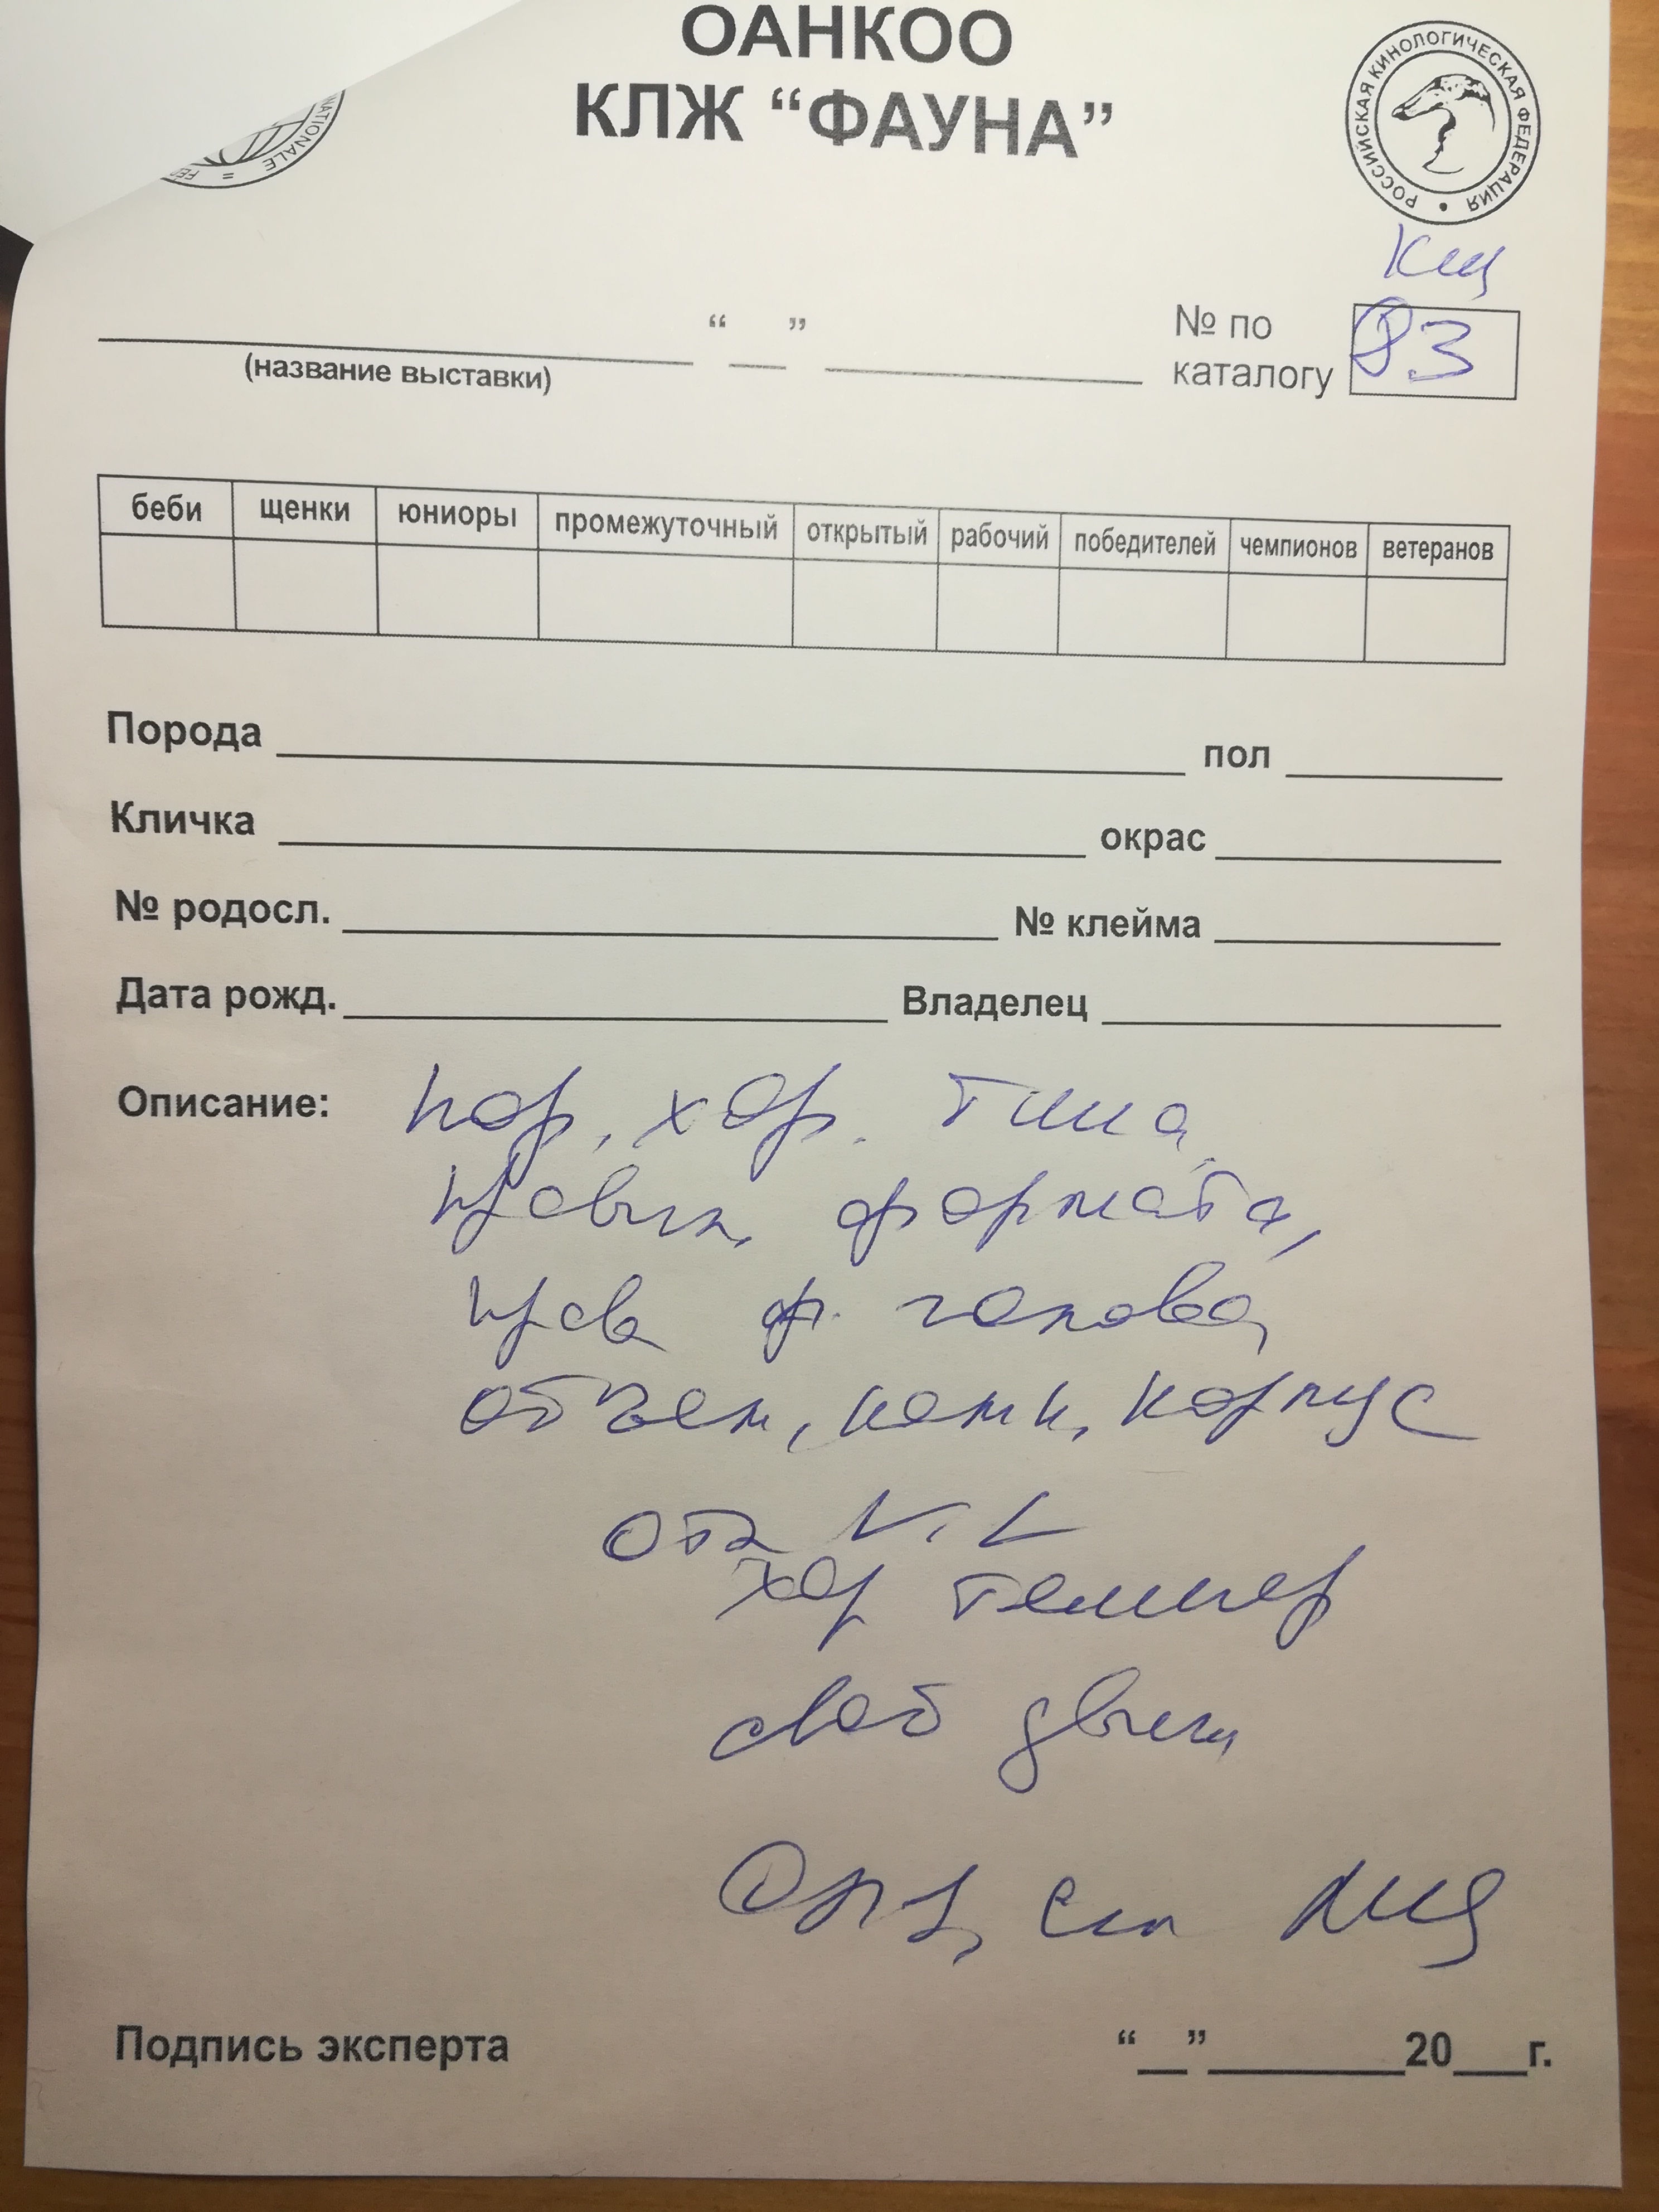 ОАНКОО
КЛЖ “ФАУНА”
NATIONALE =
РОССИЙСКАЯ КИНОЛОГИЧЕСКАЯ ФЕДЕРАЦИЯ •
“__”
(название выставки)
№ по каталогу 83
беби щенки юниоры промежуточный открытый рабочий победителей чемпионов ветеранов
Порода пол
Кличка окрас
№ родосл. № клейма
Дата рожд. Владелец
Описание: пор. хор. типа,
формата,
прав ф. голова,
объем, комп, корпус
хор темпер
своб движ
Подпись эксперта “__” 20__г.